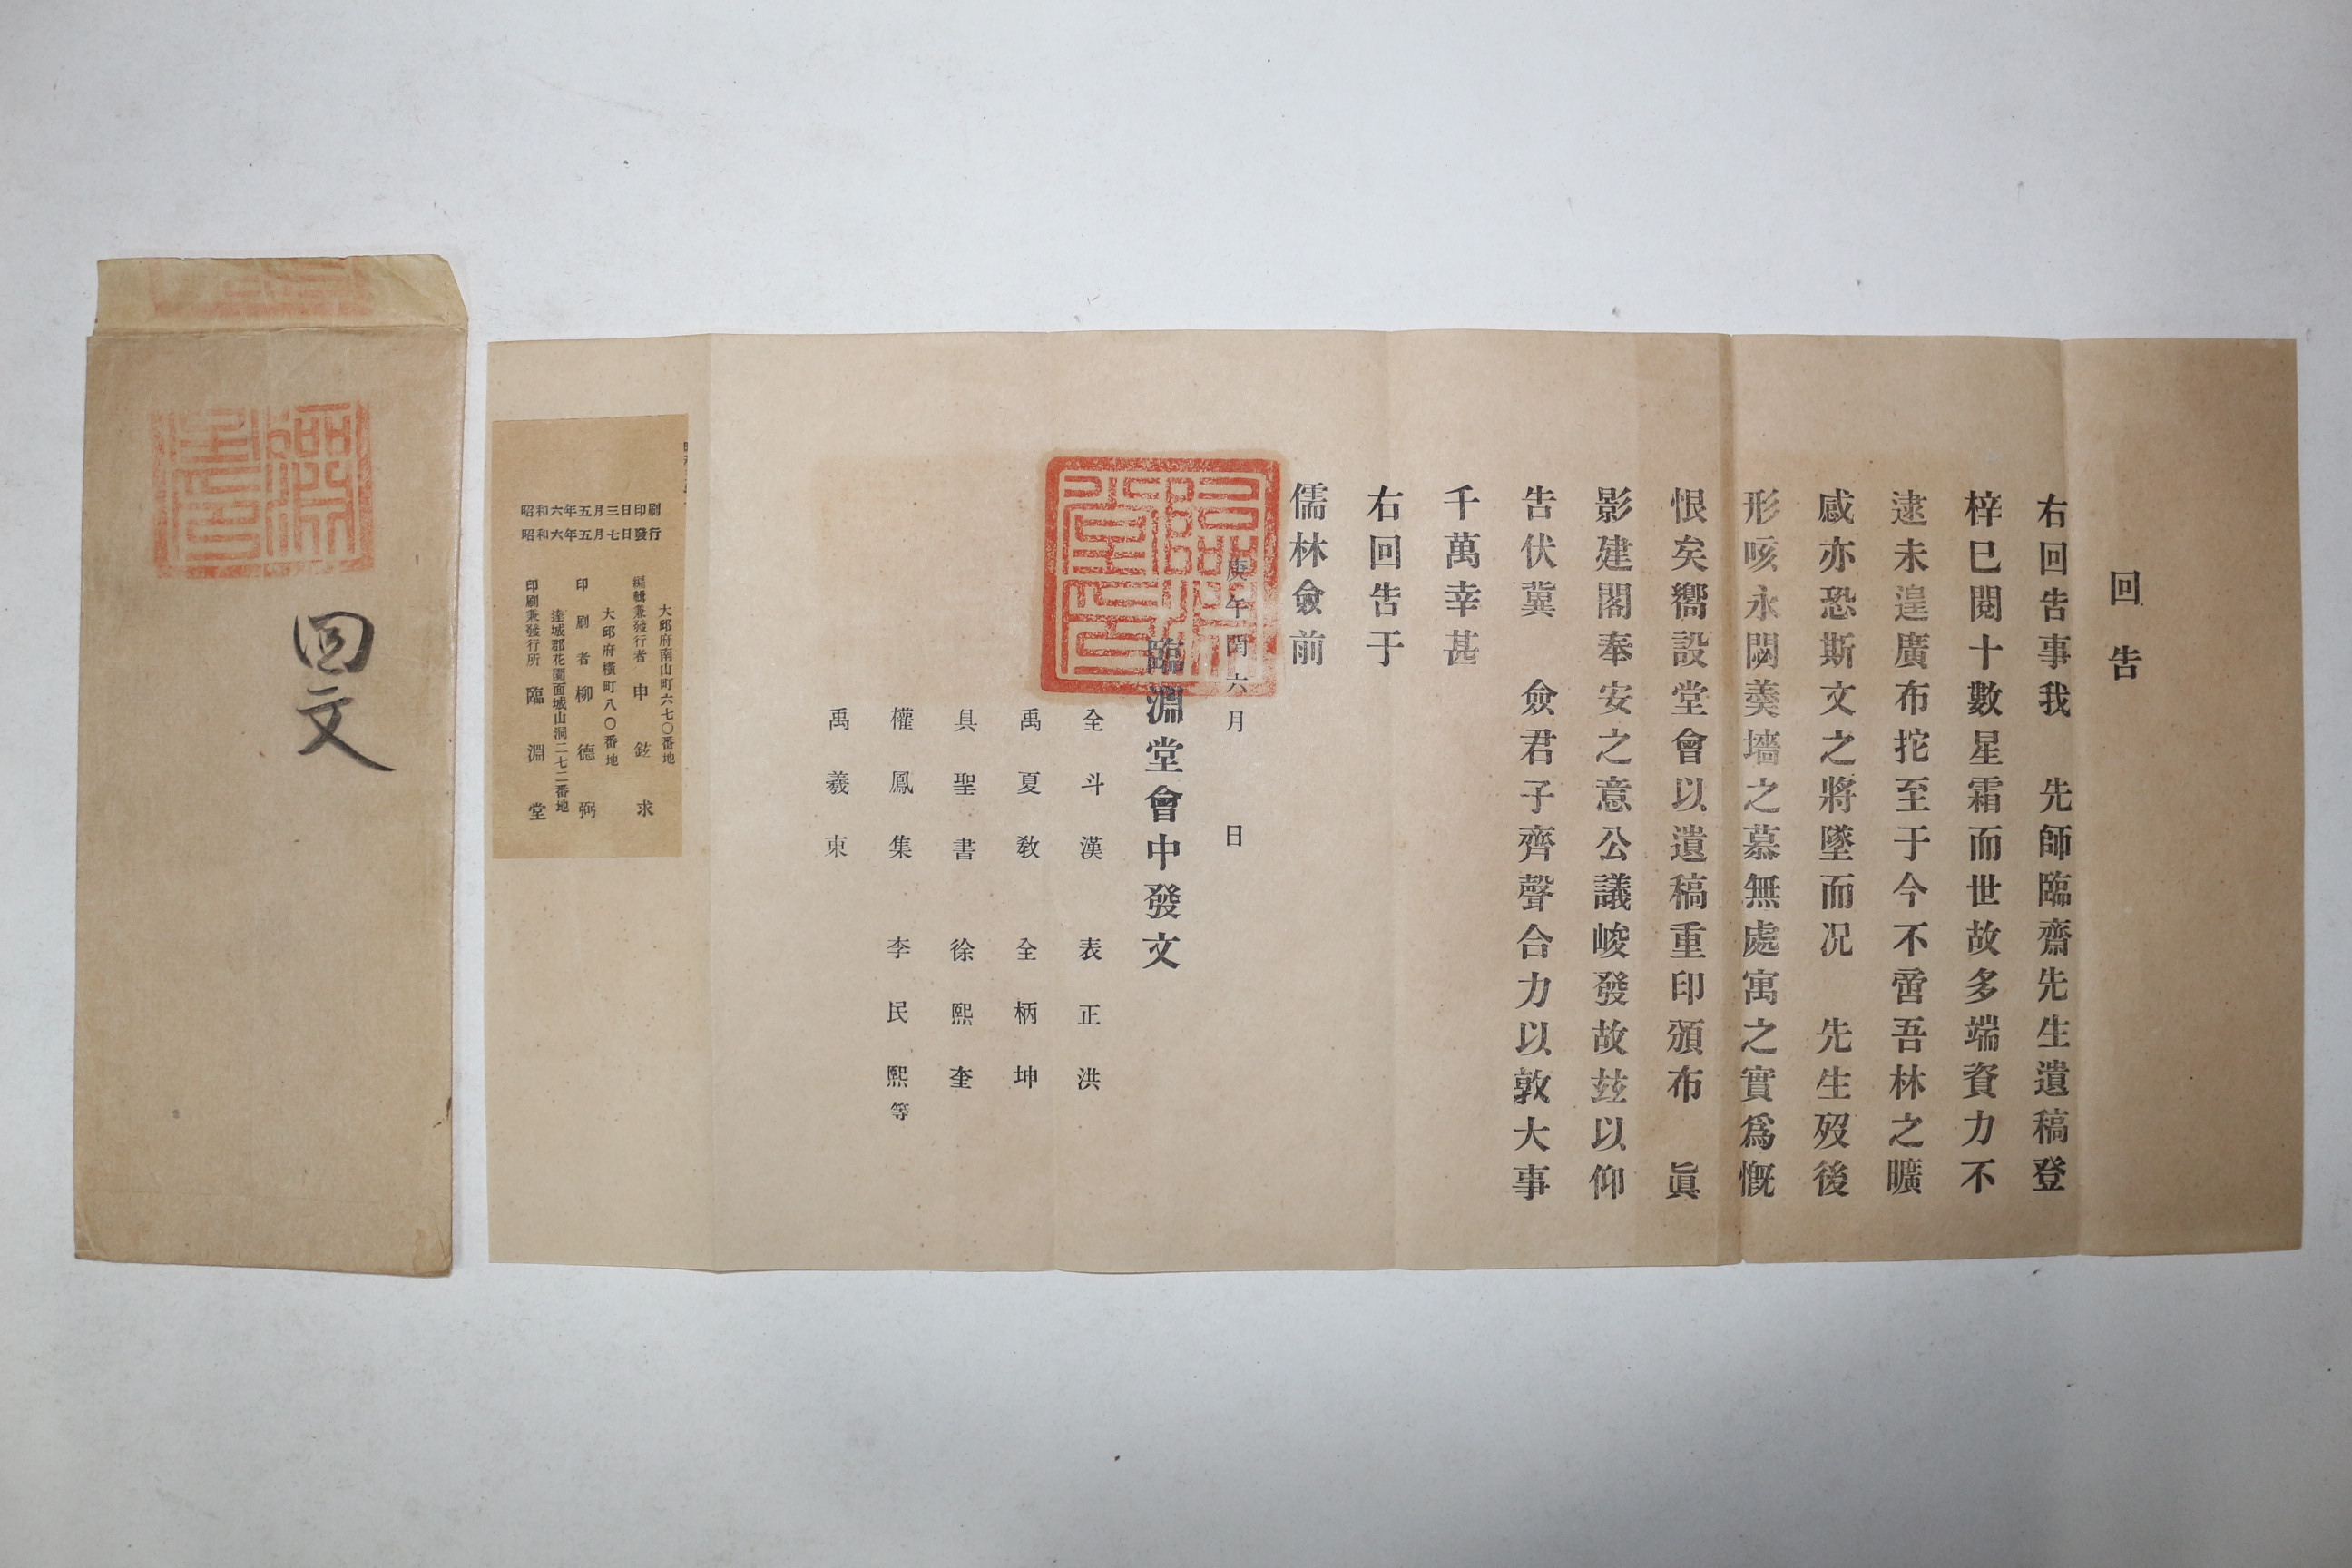 回告
右回告事我　先師臨齋先生遺稿登
梓已閱十數星霜而世故多端資力不
逮未遑廣布拕至于今不啻吾林之曠
感亦恐斯文之將墜而况　先生歿後
形咳永閟羹墻之慕無處寓之實爲慨
恨矣嚮設堂會以遺稿重印頒布　眞
影建閣奉安之意公議峻發故玆以仰
告伏冀　僉君子齊聲合力以敦大事
千萬幸甚
右回告于
儒林僉前
庚午閏六月　日
臨淵堂會中發文
全斗漢　表正洪
禹夏敎　全柄坤
具聖書　徐熙奎
權鳳集　李民熙等
禹羲東
昭和六年五月三日印刷
昭和六年五月七日發行
大邱府南山町六七〇番地
編輯兼發行者　申鉉求
大邱府橫町八〇番地
印刷者　柳德弼
達城郡花園面城山洞二七二番地
印刷兼發行所　臨淵堂
回文